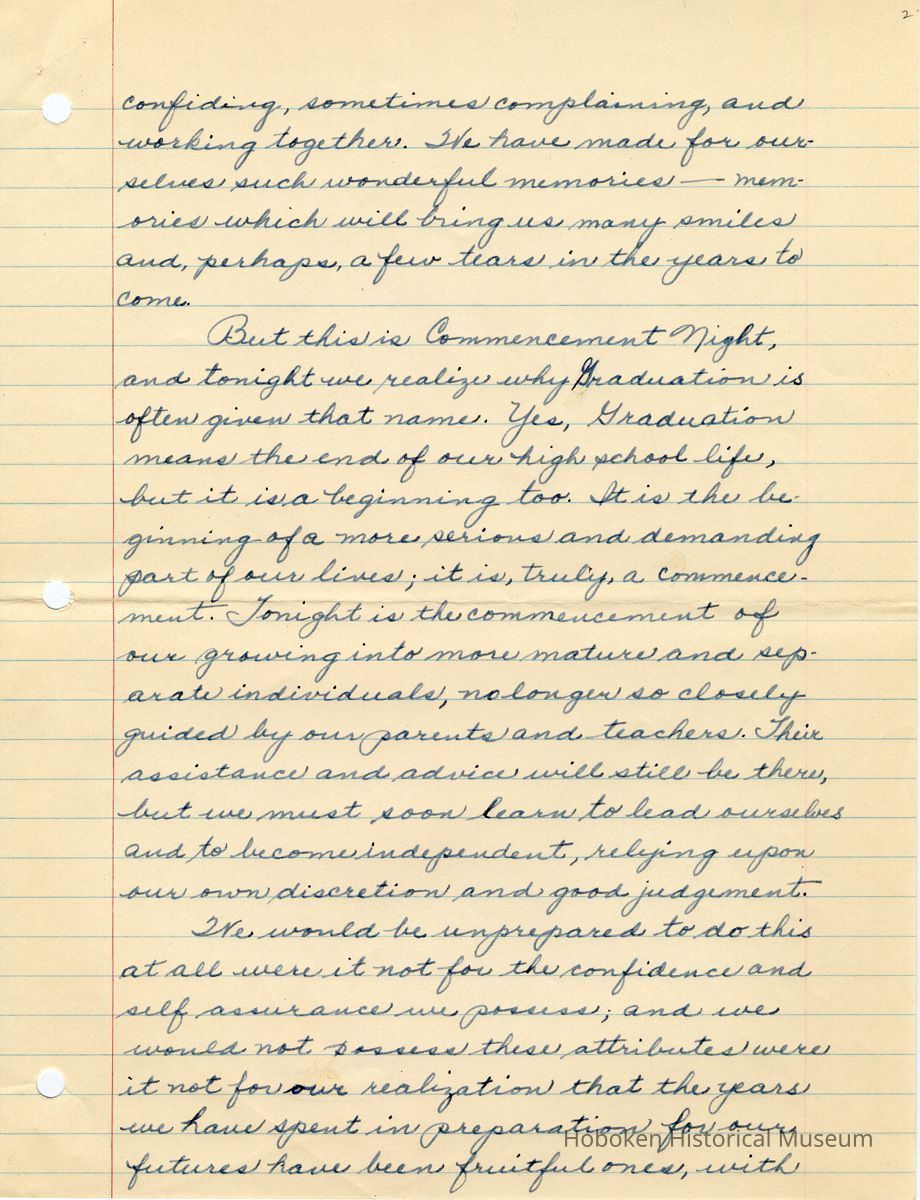 2
confiding, sometimes complaining, and
working together. We have made for our-
selves such wonderful memories — mem-
ories which will bring us many smiles
and, perhaps, a few tears in the years to
come.
But this is Commencement Night,
and tonight we realize why Graduation is
often given that name. Yes, Graduation
means the end of our high school life,
but it is a beginning too. It is the be-
ginning of a more serious and demanding
part of our lives; it is, truly, a commence-
ment. Tonight is the commencement of
our growing into more mature and sep-
arate individuals, no longer so closely
guided by our parents and teachers. Their
assistance and advice will still be there,
but we must soon learn to lead ourselves
and to become independent, relying upon
our own discretion and good judgement.
We would be unprepared to do this
at all were it not for the confidence and
self assurance we possess; and we
would not possess these attributes were
it not for our realization that the years
we have spent in preparation for our
Hoboken Historical Museum
futures have been fruitful ones, with